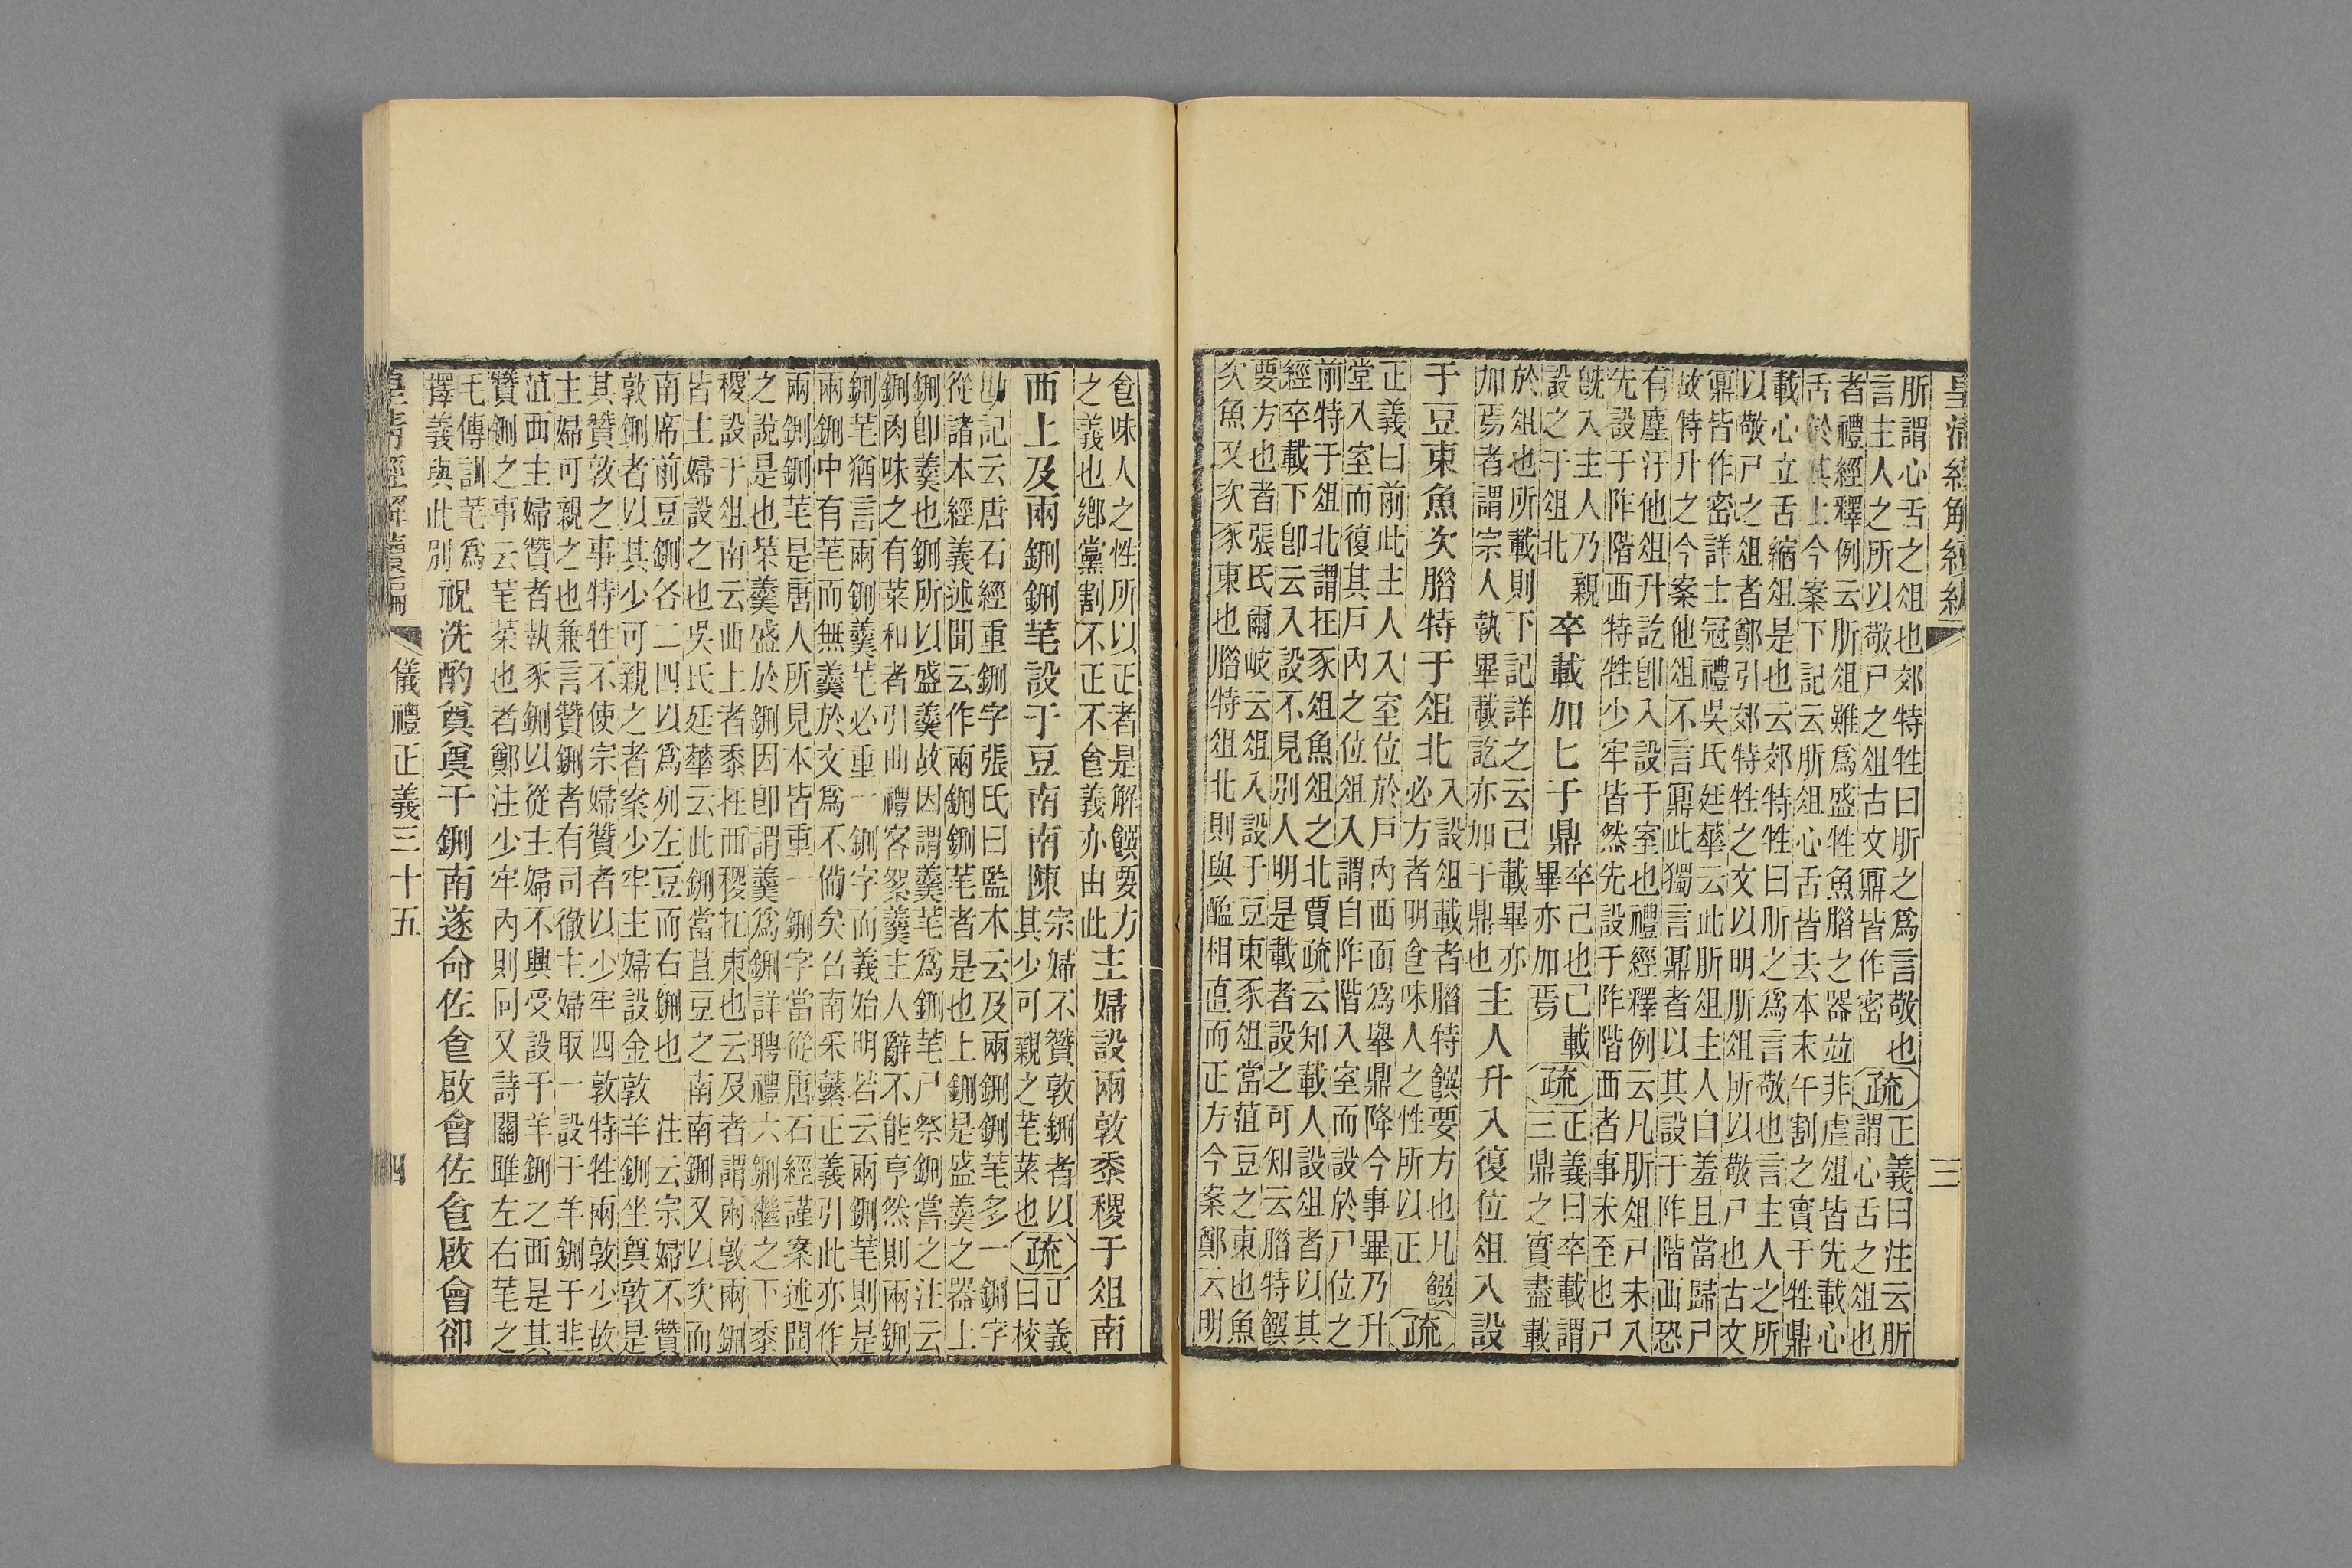 皇清經解續編　三
肵謂心舌之俎也郊特牲曰肵之爲言敬也
言主人之所以敬尸之俎古文鼏皆作密
疏
正義曰注云肵
謂心舌之俎也
者禮經釋例云肵俎雖爲盛牲魚腊之器竝非虛俎皆先載心
舌於其上今案下記云肵俎心舌皆去本末午割之實于牲鼎
載心立舌縮俎是也云郊特牲曰肵之爲言敬也言主人之所
以敬尸之俎者鄭引郊特牲之文以明肵俎所以敬尸也古文
鼏皆作密詳士冠禮吳氏廷華云此肵俎主人自羞且當歸尸
故特升之今案他俎不言鼏此獨言鼏者以其設于阼階西恐
有塵汙他俎升訖卽入設于室也禮經釋例云凡肵俎尸未入
先設于阼階西特牲少牢皆然先設于阼階西者事未至也尸
旣入主人乃親
設之于俎北
卒載加匕于鼎
卒已也已載
畢亦加焉
疏
正義曰卒載謂
三鼎之實盡載
於俎也所載則下記詳之云已載畢亦
加焉者謂宗人執畢載訖亦加于鼎也
主人升入復位俎入設
于豆東魚次腊特于俎北
入設俎載者腊特饌要方也凡饌
必方者明食味人之性所以正
疏
正義曰前此主人入室位於戶內西面爲舉鼎降今事畢乃升
堂入室而復其戶內之位俎入謂自阼階入室而設於尸位之
前特于俎北謂在豕俎魚俎之北賈疏云知載人設俎者以其
經卒載下卽云入設不見別人明是載者設之可知云腊特饌
要方也者張氏爾岐云俎入設于豆東豕俎當菹豆之東也魚
次魚又次豕東也腊特俎北則與醢相直而正方今案鄭云明
食味人之性所以正者是解饌要方
之義也鄉黨割不正不食義亦由此
主婦設兩敦黍稷于俎南
西上及兩鉶鉶芼設于豆南南陳
宗婦不贊敦鉶者以
其少可親之芼菜也
疏
正義
曰校
勘記云唐石經重鉶字張氏曰監本云及兩鉶鉶芼多一鉶字
從諸本經義述聞云作兩鉶鉶芼者是也上鉶是盛羹之器上
鉶卽羹也鉶所以盛羹故因謂羹芼爲鉶芼尸祭鉶嘗之注云
鉶肉味之有菜和者引曲禮客絮羹主人辭不能亨然則兩鉶
鉶芼猶言兩鉶羹芼必重一鉶字而義始明若云兩鉶芼則是
兩鉶中有芼而無羹於文爲不備矣召南采蘩正義引此亦作
兩鉶鉶芼是唐人所見本皆重一鉶字當從唐石經謹案述聞
之說是也菜羹盛於鉶因卽謂羹爲鉶詳聘禮六鉶繼之下黍
稷設于俎南云西上者黍在西稷在東也云及者謂兩敦兩鉶
皆主婦設之也吳氏廷華云此鉶當菹豆之南南鉶又以次而
南席前豆鉶各二四以爲列左豆而右鉶也注云宗婦不贊
敦鉶者以其少可親之者案少牢主婦設金敦羊鉶坐奠敦是
其贊敦之事特牲不使宗婦贊者以少牢四敦特牲兩敦少故
主婦可親之也兼言贊鉶者有司徹主婦取一設于羊鉶于韭
菹西主婦贊者執豕鉶以從主婦不興受設于羊鉶之西是其
贊鉶之事云芼菜也者鄭注少牢內則同又詩關雎左右芼之
毛傳訓芼爲
擇義與此別
祝洗酌奠奠于鉶南遂命佐食啟會佐食啟會卻
皇清經解續編　儀禮正義三十五　四